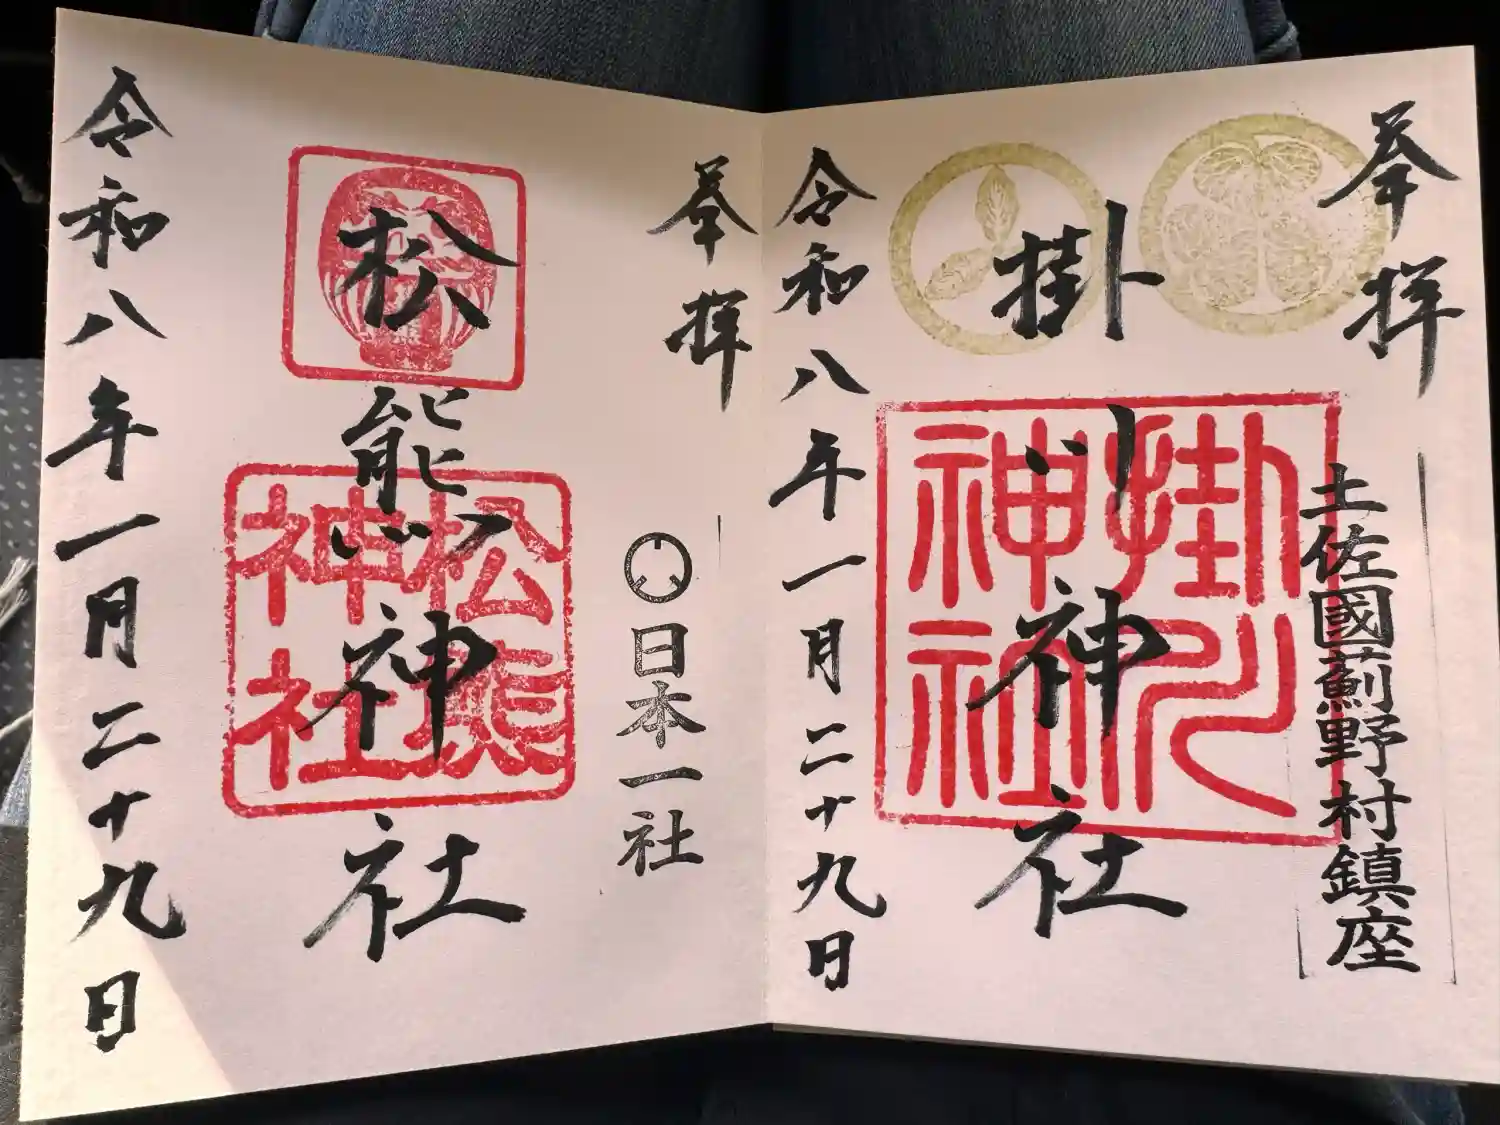 奉拝
土佐國薊野村鎮座
掛川神社
掛川神社
令和八年一月二十九日
奉拝
日本一社
松熊神社
松熊神社
令和八年一月二十九日